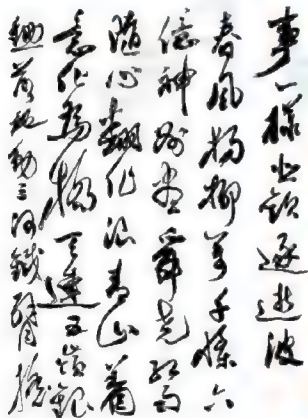 事一樣悲歡逐逝波
春風楊柳萬千條六
億神州盡舜堯紅雨
隨心翻作浪青山着
意化為橋天連五嶺銀
鋤落地動三河鐵臂搖